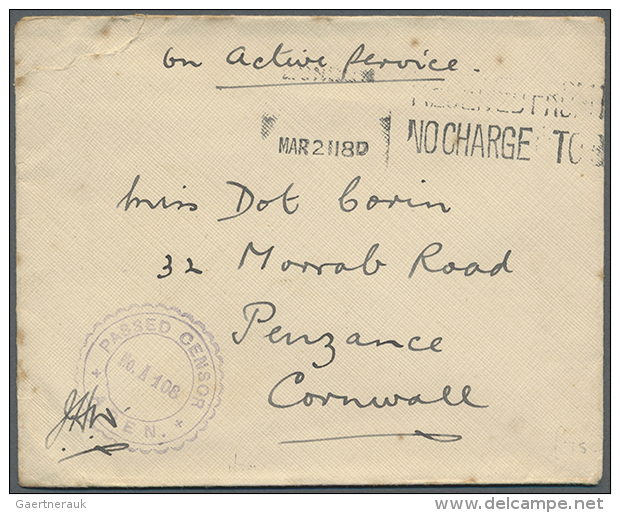 On Active Service.
LONDON
RECEIVED FROM
MAR 21 18D
NO CHARGE TO
Miss Dot Corin
32 Morrab Road
Penzance
Cornwall
PASSED CENSOR
No. A 108
ADEN.
Gaertnerauk
www.delcampe.net